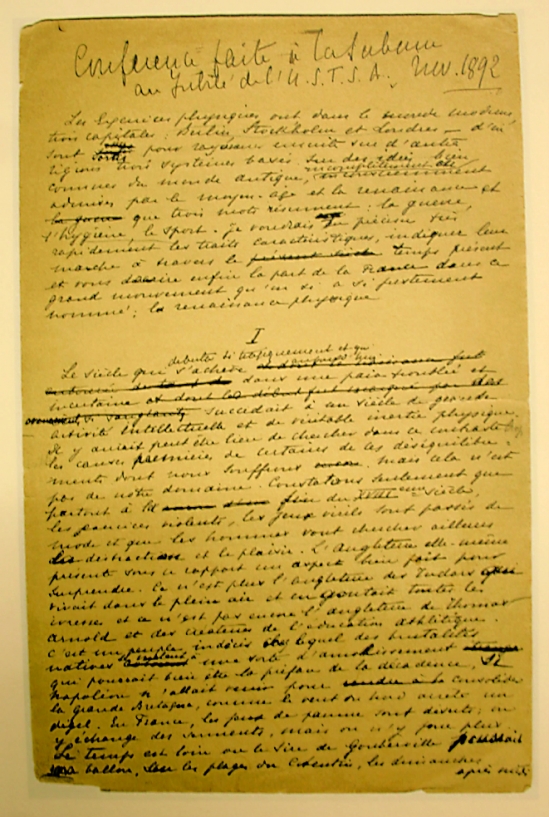 Conférence faite à la Sorbonne
au Jubilé de l'U.S.F.S.A. Nov. 1892
Les Exercices physiques ont dans le monde moderne
trois capitales : Berlin, Stockholm et Londres — d'où
sont pour rayonner ensuite sur d'autres
régions trois systèmes basés sur des idées bien
connues du monde antique, incomplètement
admises par le moyen-âge et la renaissance et
que trois mots résument : la guerre,
l'hygiène, le sport. Je voudrais en préciser très
rapidement les traits caractéristiques, indiquer leur
marche à travers le temps présent
et vous enfin la part de la France dans ce
grand mouvement qu'on a si justement
nommé : la renaissance physique
I
débuta si tragiquement et qui
Le siècle qui s'achève
dans une paix troublée et
incertaine
succédait à un siècle de grande
activité intellectuelle et de véritable inertie physique.
Il y aurait peut être lieu de chercher dans ce contraste
les causes premières de certains de ces déséquilibre-
ments dont nous souffrons. Mais cela n'est
pas de notre domaine. Constatons seulement que
partout à la fin du XVIIIme siècle,
les exercices violents, les jeux virils sont passés de
mode et que les hommes vont chercher ailleurs
la distraction et le plaisir. L'Angleterre elle-même
présente sous ce rapport un aspect bien fait pour
surprendre. Ce n'est plus l'Angleterre des Tudors qui
vivait dans le plein air et en goûtait toutes les
ivresses et ce n'est pas encore l'Angleterre de Thomas
Arnold et des créateurs de l'éducation athlétique.
C'est un peuple indécis chez lequel des brutalités
natives à une sorte d'amollissement
qui pourrait bien être la préface de la décadence, si
Napoléon n'allait venir pour consolider
la grande Bretagne, comme le vent du nord arrête un
dégel. En France, les jeux de paume sont déserts : on
y échange des serments, mais on n'y joue plus
Le temps est loin où le Sire de Gouberville
ballon, sur les plages du Cotentin, les dimanches
après midi